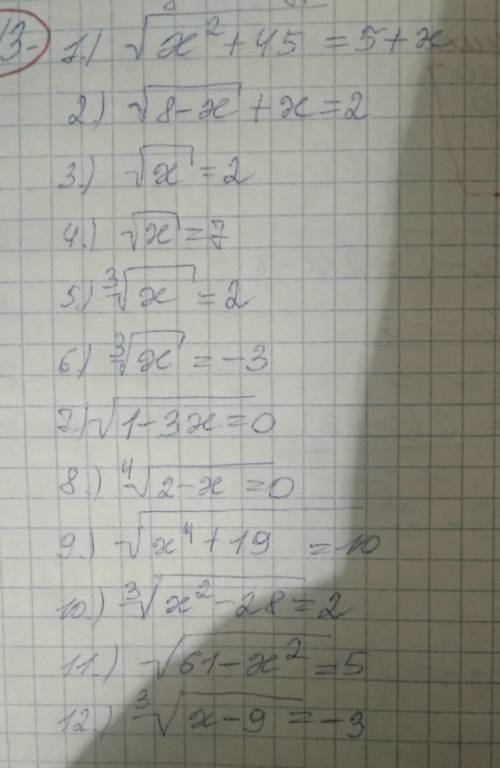 13. 1.) √(x²+45) = 5+x
2.) √(8-x) + x = 2
3.) √x = 2
4.) √x = 7
5.) ∛x = 2
6.) ∛x = -3
7.) √(1-3x) = 0
8.) ∜(2-x) = 0
9.) √(x⁴+19) = 10
10.) ∛(x²-28) = 2
11.) √(61-x²) = 5
12.) ∛(x-9) = -3